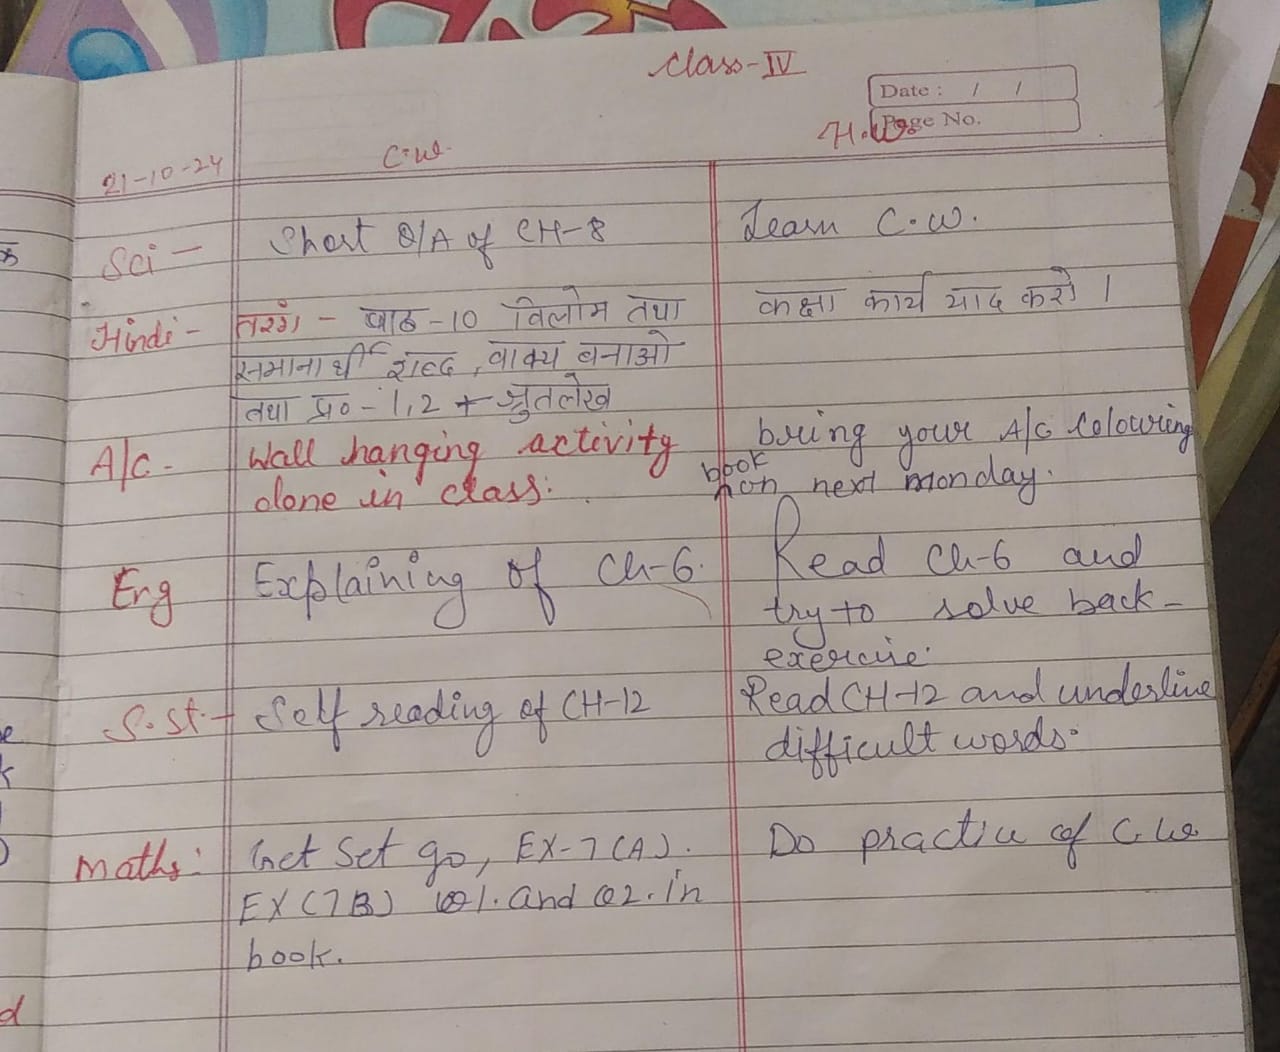 Class-IV
Date : / /
Page No.
H.W
21-10-24 C.W.
Sci - Short Q/A of CH-8 Learn C.W.
Hindi - तरंग - पाठ-10 विलोम तथा कक्षा कार्य याद करो ।
समानार्थी शब्द, वाक्य बनाओ
तथा प्र० - 1,2 + श्रुतलेख
A/C - Wall hanging activity bring your A/C Colouring
done in class. book on next monday.
Eng Explaining of Ch-6. Read Ch-6 and
try to solve back-
exercise.
S.St. - Self reading of CH-12 Read CH-12 and underline
difficult words.
Maths: Get Set go, EX-7(A). Do practice of C.W
EX(7B) Q1. and Q2. in
book.